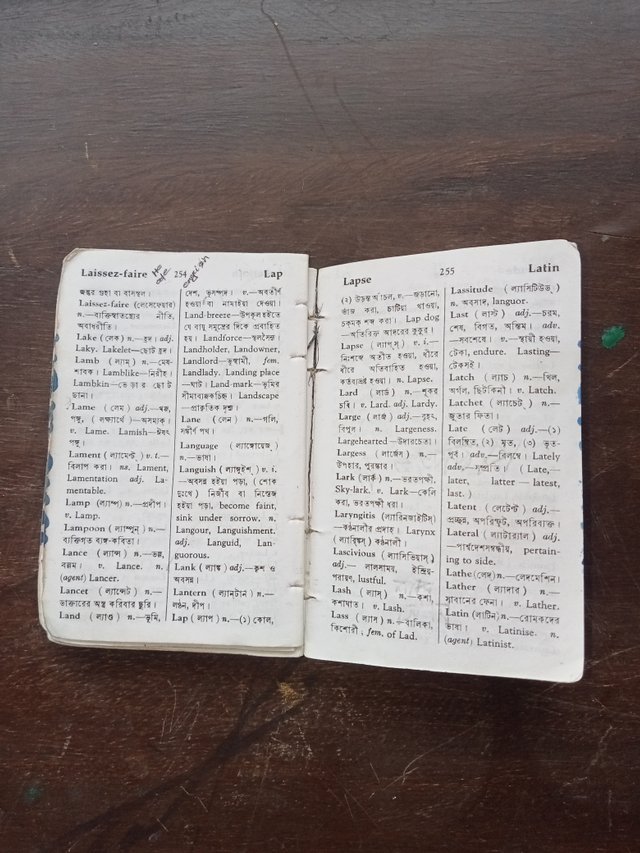 Laissez-faire 254 Lap
জন্তুর গুহা বা বাসস্থল।
Laissez-faire (লেসেফেয়ার)
n.—ব্যক্তিস্বাতন্ত্র্যের নীতি,
অবাধরীতি।
Lake (লেক) n.—হ্রদ। adj.
Laky. Lakelet—ছোট হ্রদ।
Lamb (ল্যাম) n.—মেষ-
শাবক। Lamblike—নিরীহ।
Lambkin—ভেড়ার ছোট
ছানা।
Lame (লেম) adj.—খঞ্জ,
পঙ্গু, (লক্ষ্যার্থে)—অসহায়ক।
v. Lame. Lamish—ঈষৎ
পঙ্গু।
Lament (ল্যামেন্ট) v. t.—
বিলাপ করা। ns. Lament,
Lamentation adj. La-
mentable.
Lamp (ল্যাম্প) n.—প্রদীপ।
v. Lamp.
Lampoon (ল্যাম্পুন) n.—
ব্যক্তিগত ব্যঙ্গ-কবিতা।
Lance (ল্যান্স) n.—ভল্ল,
বল্লম। v. Lance. n.
(agent) Lancer.
Lancet (ল্যান্সেট) n.—
ডাক্তারের অস্ত্র করিবার ছুরি।
Land (ল্যাণ্ড) n.—ভূমি,
দেশ, ভূসম্পদ। v.—অবতীর্ণ
হওয়া বা নামাইয়া দেওয়া।
Land-breeze—উপকূল হইতে
যে বায়ু সমুদ্রের দিকে প্রবাহিত
হয়। Landforce—স্থলসৈন্য।
Landholder, Landowner,
Landlord—ভূস্বামী, fem.
Landlady. Landing place
—ঘাট। Land-mark—ভূমির
সীমাবাচকচিহ্ন। Landscape
—প্রাকৃতিক দৃশ্য।
Lane (লেন) n.—গলি,
সঙ্কীর্ণ পথ।
Language (ল্যাঙ্গোয়েজ)
n.—ভাষা।
Languish (ল্যাঙ্গুইশ) v. i.—
অবসন্ন হইয়া পড়া, (শোক
দুঃখে) নির্জীব বা নিস্তেজ
হইয়া পড়া, become faint,
sink under sorrow. n.
Langour, Languishment.
adj. Languid, Lan-
guorous.
Lank (ল্যাঙ্ক) adj.—কৃশ ও
অবসন্ন।
Lantern (ল্যানটার্ন) n.—
লণ্ঠন, দীপ।
Lap (ল্যাপ) n.—(১) কোল,
Lapse 255 Latin
(২) উড়ন্ত আঁচল, v.—জড়ানো,
ভাঁজ করা, চাটিয়া খাওয়া,
চকমক শব্দ করা। Lap dog
—অতিরিক্ত আদরের কুকুর।
Lapse (ল্যাপ্স্) v. i.—
নিঃশব্দে অতীত হওয়া, ধীরে
ধীরে অতিবাহিত হওয়া,
কর্তব্যভ্রষ্ট হওয়া। n. Lapse.
Lard (লার্ড) n.—শূকর
চর্বি। v. Lard. adj. Lardy.
Large (লার্জ) adj.—বৃহৎ,
বিপুল। n. Largeness.
Largehearted—উদারচেতা।
Largess (লার্জেস) n.—
উপহার, পুরস্কার।
Lark (লার্ক) n.—ভরতপক্ষী.
Sky-lark. v. Lark—কেলি
করা, ভরতপক্ষী ধরা।
Laryngitis (ল্যারিনজাইটিস)
—কণ্ঠনালীর প্রদাহ। Larynx
(ল্যারিঙ্কস্) কণ্ঠনালী।
Lascivious (ল্যাসিভিয়াস্)
adj.— লালসাময়, ইন্দ্রিয়-
পরায়ণ, lustful.
Lash (ল্যাস্) n.—কশা,
কশাঘাত। v. Lash.
Lass (ল্যাস) n.—বালিকা,
কিশোরী; fem. of Lad.
Lassitude (ল্যাসিটিউড্)
n. অবসাদ, languor.
Last (লাস্ট) adj.—চরম,
শেষ, বিগত, অন্তিম। adv.
—সবশেষে। v.—স্থায়ী হওয়া,
টেকা, endure. Lasting—
টেকসই।
Latch (ল্যাচ) n.—খিল,
অর্গল, ছিটকিনী। v. Latch.
Latchet (ল্যাচেট) n.—
জুতার ফিতা।
Late (লেট) adj.—(১)
বিলম্বিত, (২) মৃত, (৩) ভূত-
পূর্ব। adv.—বিলম্বে। Lately
adv.—সম্প্রতি। (Late,—
later, latter — latest,
last.)
Latent (লেটেন্ট) adj.—
প্রচ্ছন্ন, অপরিস্ফুট, অপরিব্যক্ত।
Lateral (ল্যাটার‍্যাল) adj.
—পার্শ্বদেশসম্বন্ধীয়, pertain-
ing to side.
Lathe (লেদ) n.—লেদমেশিন।
Lather (ল্যাদার) n.—
সাবানের ফেনা। v. Lather.
Latin (লাটিন) n.—রোমকদের
ভাষা। v. Latinise. n.
(agent) Latinist.